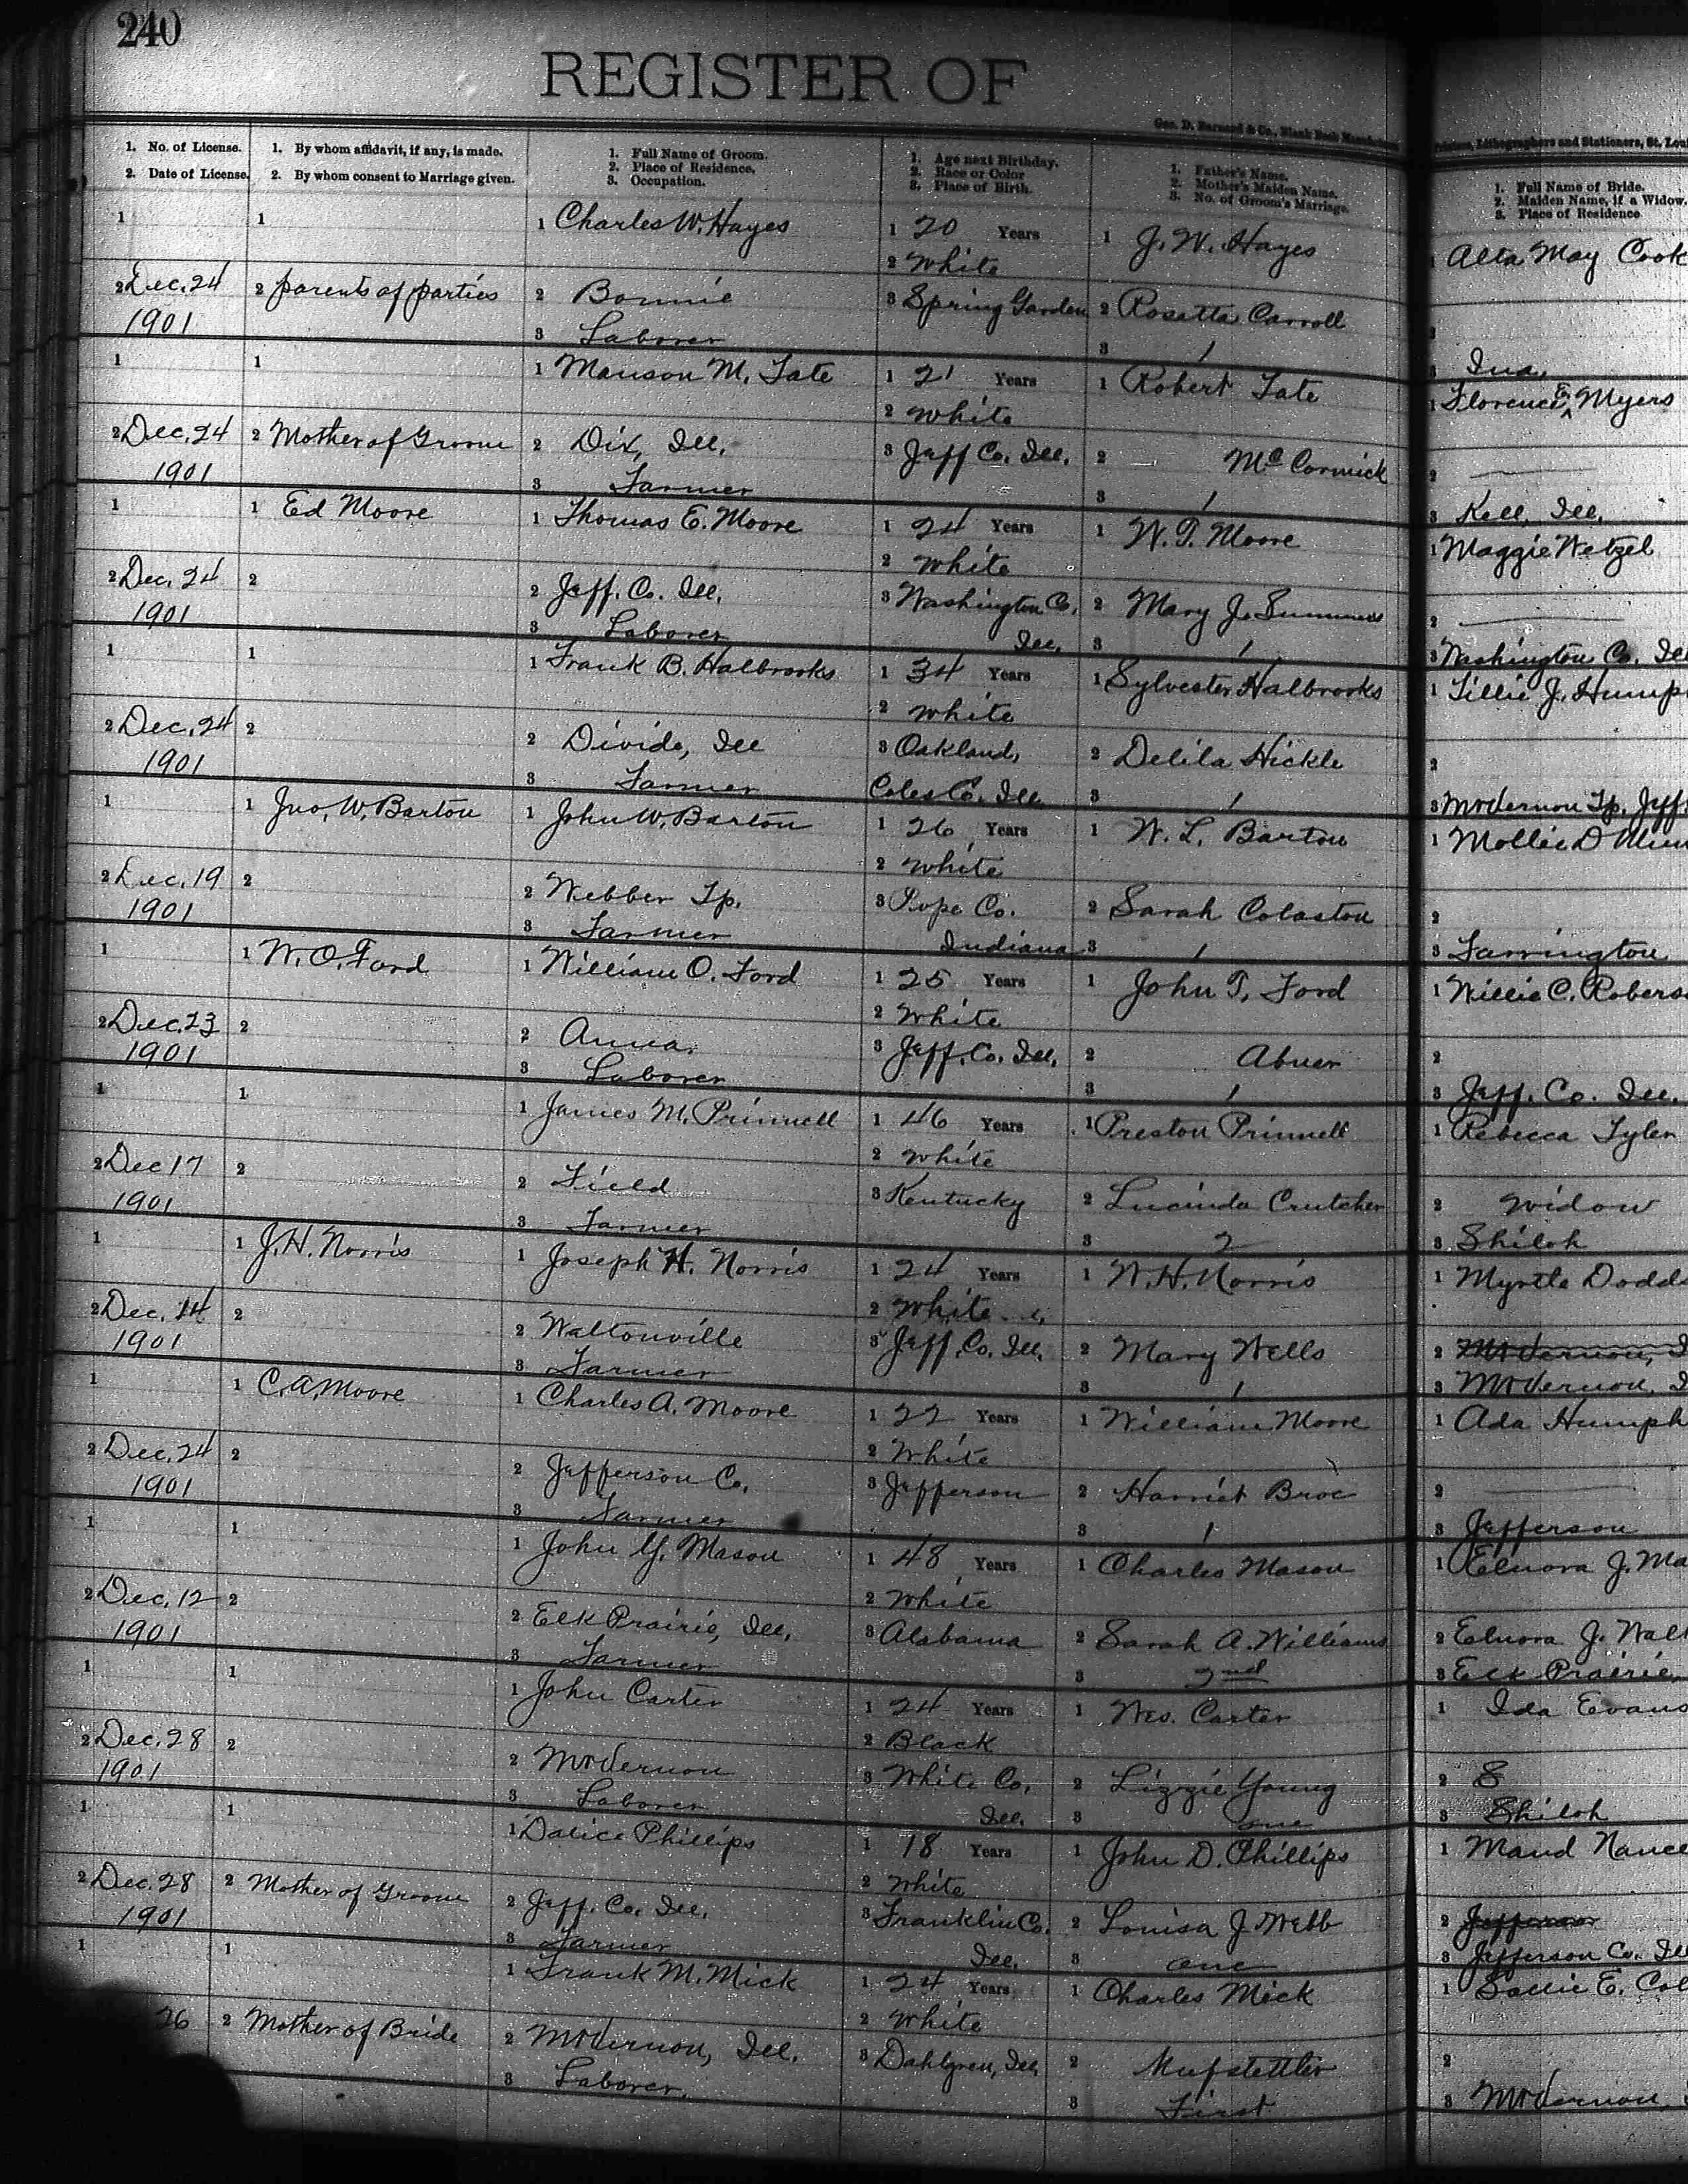 240
REGISTER OF
Geo. D. Barnard & Co., Blank Book
Lithographers and Stationers, St. Loui
1. No. of License.
2. Date of License.
1. By whom affidavit, if any, is made.
2. By whom consent to Marriage given.
1. Full Name of Groom.
2. Place of Residence.
3. Occupation.
1. Age next Birthday.
2. Race or Color
3. Place of Birth.
1. Father's Name.
2. Mother's Maiden Name.
3. No. of Groom's Marriage.
1. Full Name of Bride.
2. Maiden Name, if a Widow.
3. Place of Residence
1 1 1 Charles W. Hayes 1 20 Years 1 J. W. Hayes 1 Alta May Cook
2 White
2 Dec. 24 2 parents of parties 2 Bonnie 3 Spring Garden 2 Rosetta Carroll
1901 3 Laborer 3 1 3 Ina,
1 1 1 Manson M. Tate 1 21 Years 1 Robert Tate 1 Florence E. Myers
2 White
2 Dec. 24 2 Mother of Groom 2 Dix, Ill. 3 Jeff Co. Ill. 2 McCormick 2
1901 3 Farmer 3 1 3 Kell, Ill.
1 1 Ed Moore 1 Thomas E. Moore 1 24 Years 1 W. T. Moore 1 Maggie Wetzel
2 White
2 Dec. 24 2 2 Jeff. Co. Ill. 3 Washington Co. 2 Mary J. Summers 2
1901 3 Laborer Ill. 3 1 3 Washington Co. Ill
1 1 1 Frank B. Halbrooks 1 34 Years 1 Sylvester Halbrooks 1 Tillie J. Hump
2 White
2 Dec. 24 2 2 Divide, Ill 3 Oakland, 2 Delila Hickle 2
1901 3 Farmer Coles Co. Ill 3 1 3 Mt Vernon Tp. Jeff
1 1 Jno. W. Barton 1 John W. Barton 1 26 Years 1 W. L. Barton 1 Mollie D
2 White
2 Dec. 19 2 2 Webber Tp. 3 Pope Co. 2 Sarah Colaston 2
1901 3 Farmer Indiana 3 1 3 Farrington
1 1 W. O. Ford 1 William O. Ford 1 25 Years 1 John T. Ford 1 Willie C. Roberso
2 White
2 Dec. 23 2 2 Anna. 3 Jeff. Co. Ill. 2 Abner 2
1901 3 Laborer 3 1 3 Jeff. Co. Ill.
1 1 1 James M. Prinnell 1 46 Years 1 Preston Prinnell 1 Rebecca Tyler
2 White
2 Dec 17 2 2 Field 3 Kentucky 2 Lucinda Crutcher 2 Widow
1901 3 Farmer 3 2 3 Shiloh
1 1 J. H. Norris 1 Joseph H. Norris 1 24 Years 1 W. H. Norris 1 Myrtle Dodds
2 White
2 Dec. 14 2 2 Waltonville 3 Jeff. Co. Ill. 2 Mary Wells 2 Mt Vernon, I
1901 3 Farmer 3 1 3 Mt Vernon, I
1 1 C. A. Moore 1 Charles A. Moore 1 22 Years 1 William Moore 1 Ada Humph
2 White
2 Dec. 24 2 2 Jefferson Co. 3 Jefferson 2 Harriet Broc 2
1901 3 Farmer 3 1 3 Jefferson
1 1 1 John Y. Mason 1 48 Years 1 Charles Mason 1 Elnora J. Ma
2 White
2 Dec. 12 2 2 Elk Prairie, Ill. 3 Alabama 2 Sarah A. Williams 2 Elnora J. Walt
1901 3 Farmer 3 2nd 3 Elk Prairie,
1 1 1 John Carter 1 24 Years 1 Wes. Carter 1 Ida Evans
2 Black
2 Dec. 28 2 2 Mt Vernon 3 White Co. 2 Lizzie Young 2 S
1901 3 Laborer Ill. 3 one 3 Shiloh
1 1 1 Dalice Phillips 1 18 Years 1 John D. Phillips 1 Maud Nance
2 White
2 Dec. 28 2 Mother of Groom 2 Jeff. Co. Ill. 3 Franklin Co. 2 Louisa J. Webb 2 Jefferson
1901 3 Farmer Ill. 3 one 3 Jefferson Co. Ill
1 1 1 Frank M. Mick 1 24 Years 1 Charles Mick 1 Sallie E. Col
2 White
26 2 Mother of Bride 2 Mt Vernon, Ill. 3 Dahlgren, Ill. 2 Mufstettler 2
3 Laborer. 3 First 3 Mt Vernon